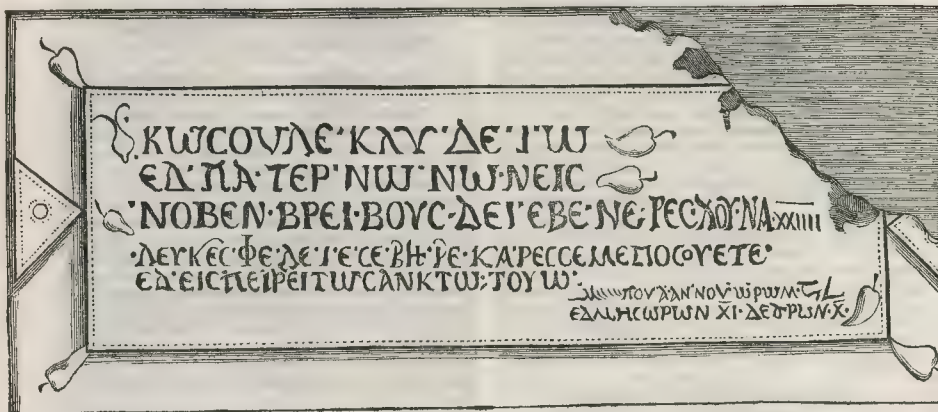 ΚѠϹΟΥΛΕ·ΚΛΥ·ΔΕ·Ι·Ѡ
ΕΔ·ΠΑ·ΤΕΡ·ΝѠ·ΝѠ·ΝΕΙϹ
·ΝΟΒΕΝ·ΒΡΕΙ·ΒΟΥϹ·ΔΕΙ·ΕΒΕ·ΝΕ·ΡΕϹ·ΛΟΥ·ΝΑ·XXIIII
·ΛΕΥΚΕϹ·ΦΕ·ΛΕ·Ι·Ε·ϹΕ·ΒΗ·ΡΕ·ΚΑ·ΡΕϹϹΕΜΕΠΟϹΟΥΕΤΕ·
ΕΔ·ΕΙϹΠΕΙΡΕΙΤѠϹΑΝΚΤѠ:ΤΟΥѠ·
ΑΝ·ΝΟΥ·ѠΡѠΜ·
ΕΔΜΗϹѠΡѠΝ XI·ΔΕΠΡѠΝ·X·